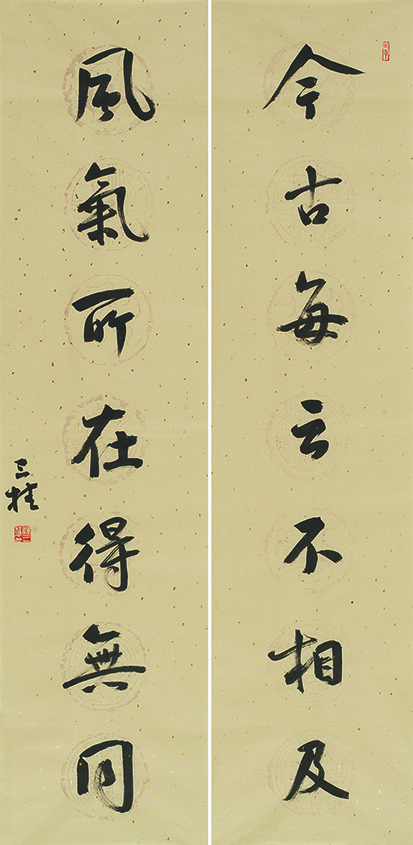 今古每云不相及
風氣所在得無同
三桂